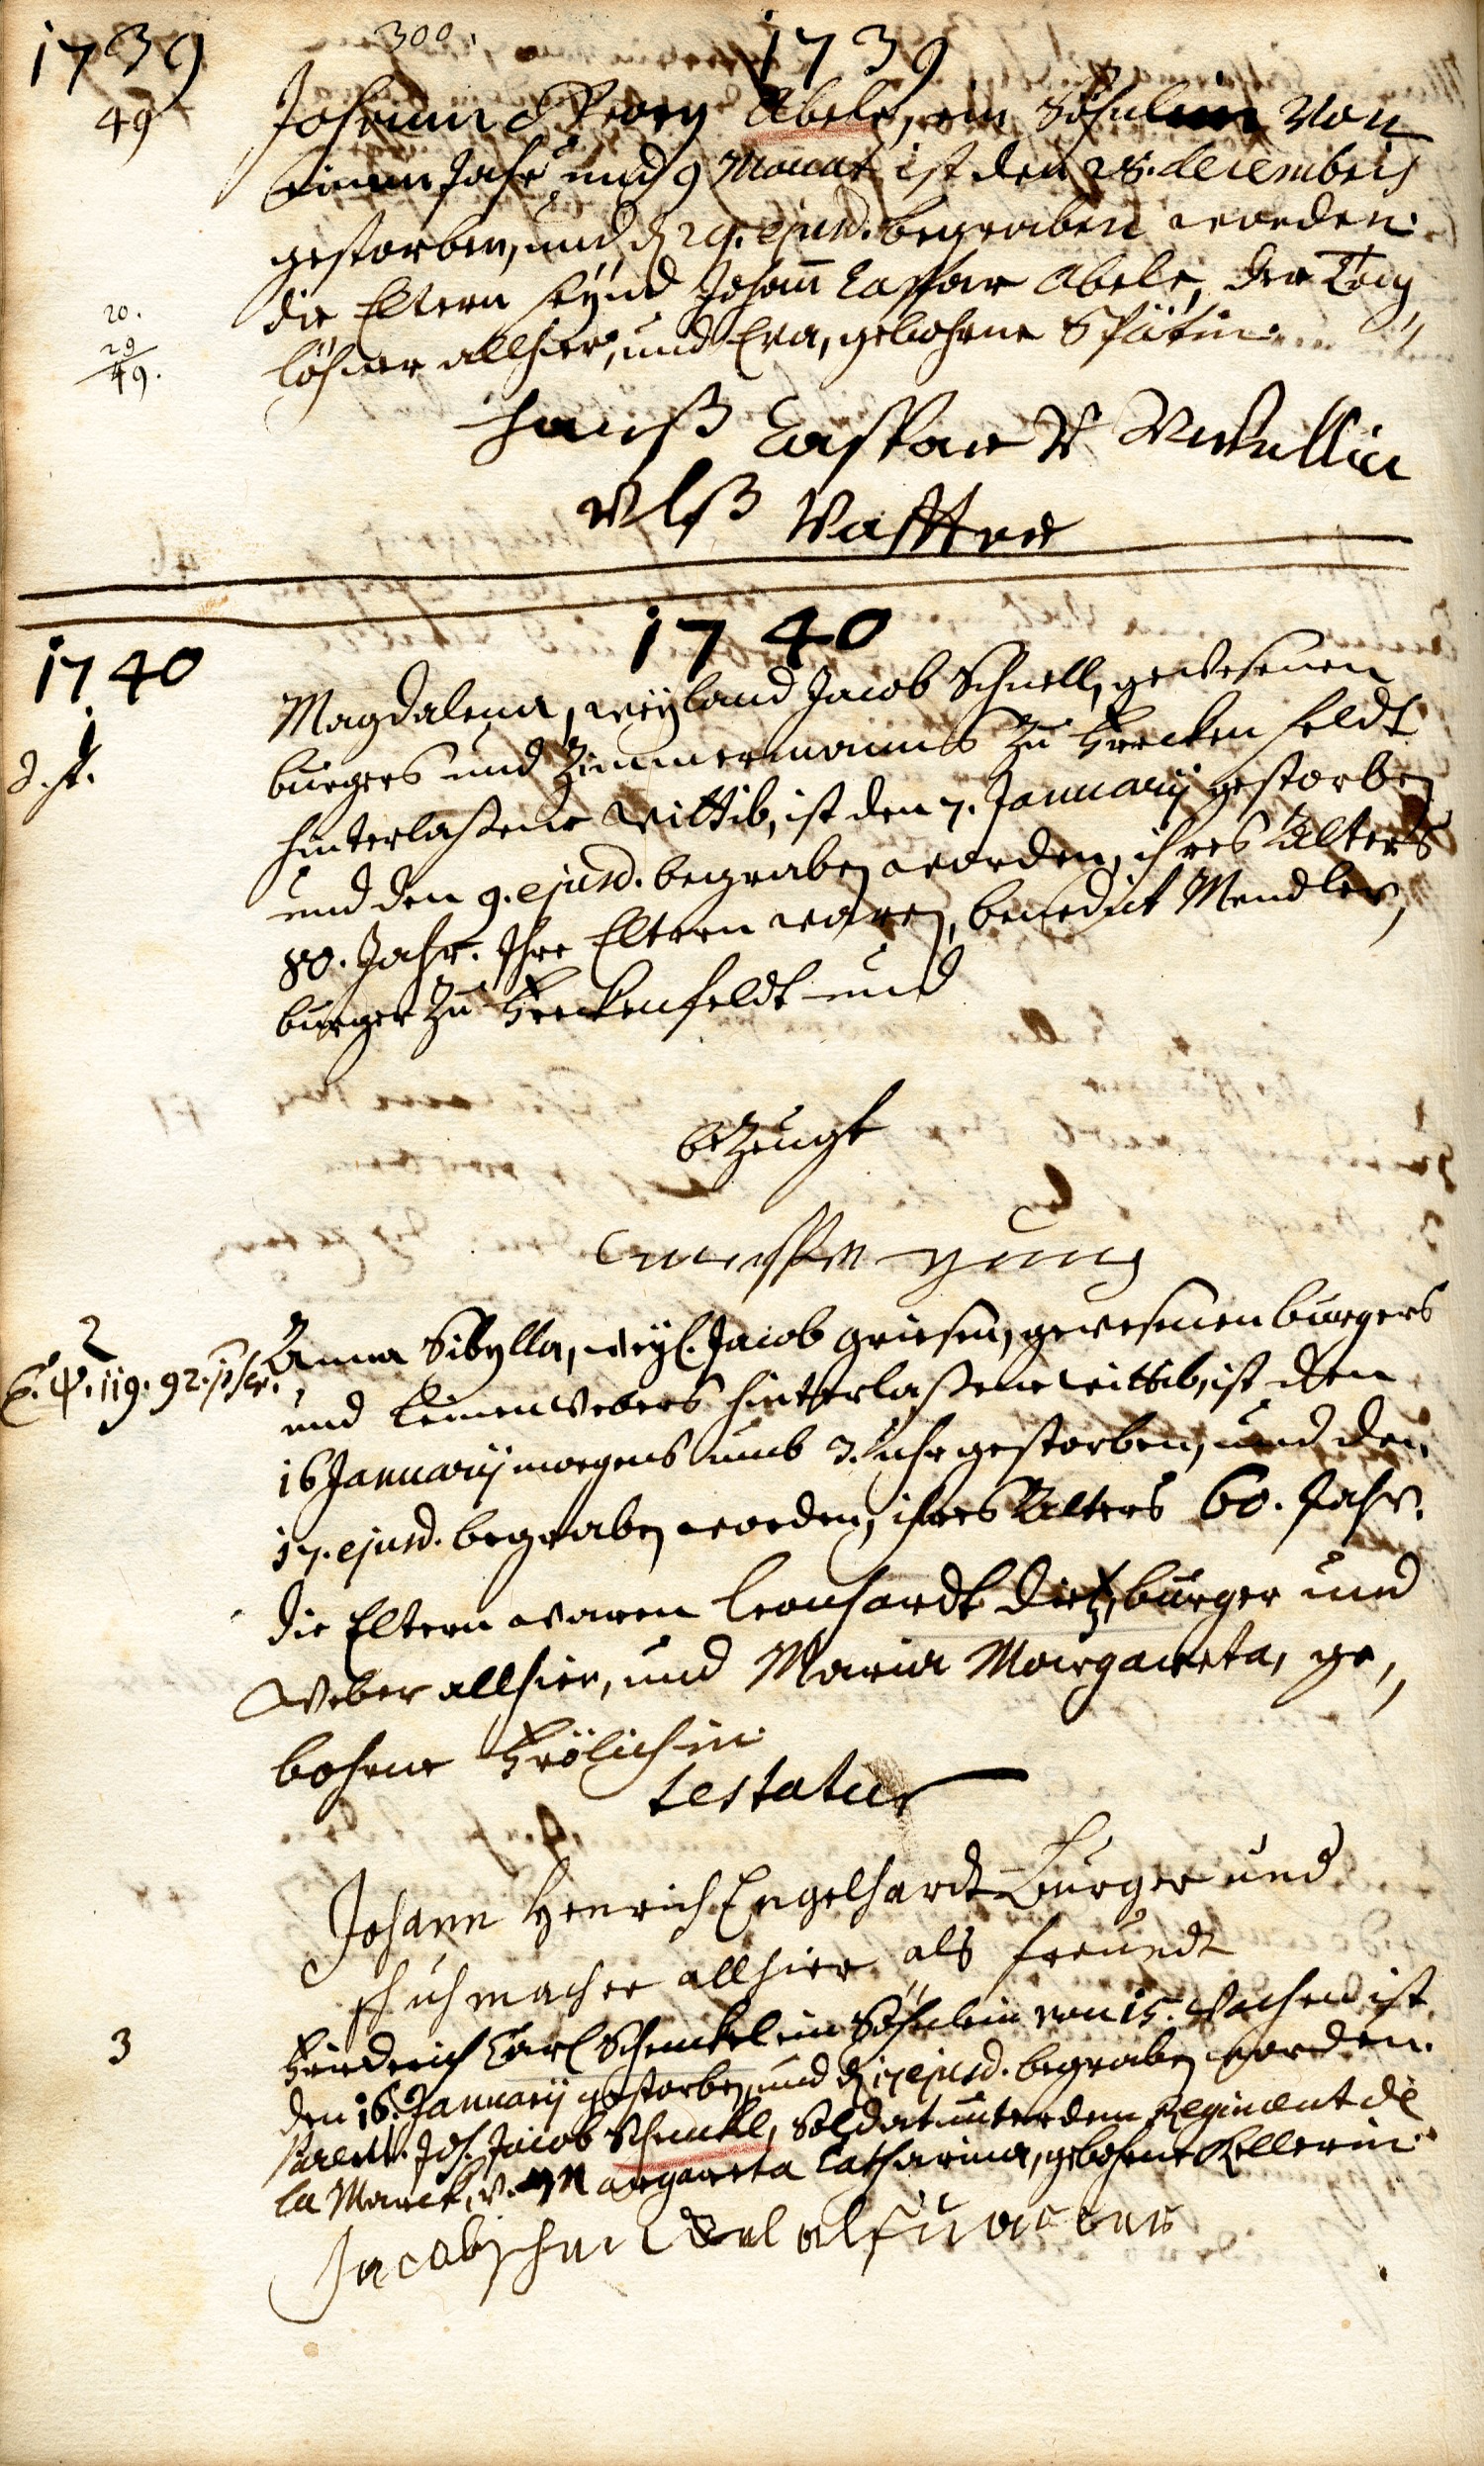 1739
300.
1739
49
Johann Georg Abele, ein Söhnlein von
einem Jahr und 9 Monat ist den 28. decembris
gestorben, und d. 29. ejusd. begraben worden.
die Eltern seynd Johann Caspar Abele, der Tag,
löhner allhier, und Eva, gebohrne Spätin.
20.
29
49.
Hanß Caspar
alß Vatter
1740
1740
1
d. st.
Magdalena, weyland Jacob Schnell, gewesenen
burgers und Zimmermanns zu Freckenfeldt
hinterlaßene Wittib, ist den 7. Januarij gestorben
und den 9. ejusd. begraben worden, ihres Alters
80. Jahr. Ihre Eltern waren, benedict Mendler,
burger zu Freckenfeldt und
bezeugt
2
Anna Sibylla, weyl. Jacob Griesen, gewesenen burgers
119. 92.
und Leinenwebers hinterlaßene wittib, ist den
16 Januarij morgens umb 3. uhr gestorben, und den
17. ejusd. begraben worden, ihres Alters 60. Jahr.
die Eltern waren Leonhardt Dietz, burger und
Weber allhier, und Maria Margareta, ge,,
bohrne Frölichin.
testatur
Johann Henrich Engelhardt Burger und
schuhmacher allhier als freundt
3
Friderich Carl Schenckel ein Söhnlein von 15. Wochen ist
den 16. Januarij gestorben, und d. 17 ejusd. begraben worden.
Parent. Joh. Jacob Schenckel, Soldat unter dem Regiment de
la Marck, v. Margareta Catharina, gebohrne Kellerin.
Jacob schenckel alß vatter